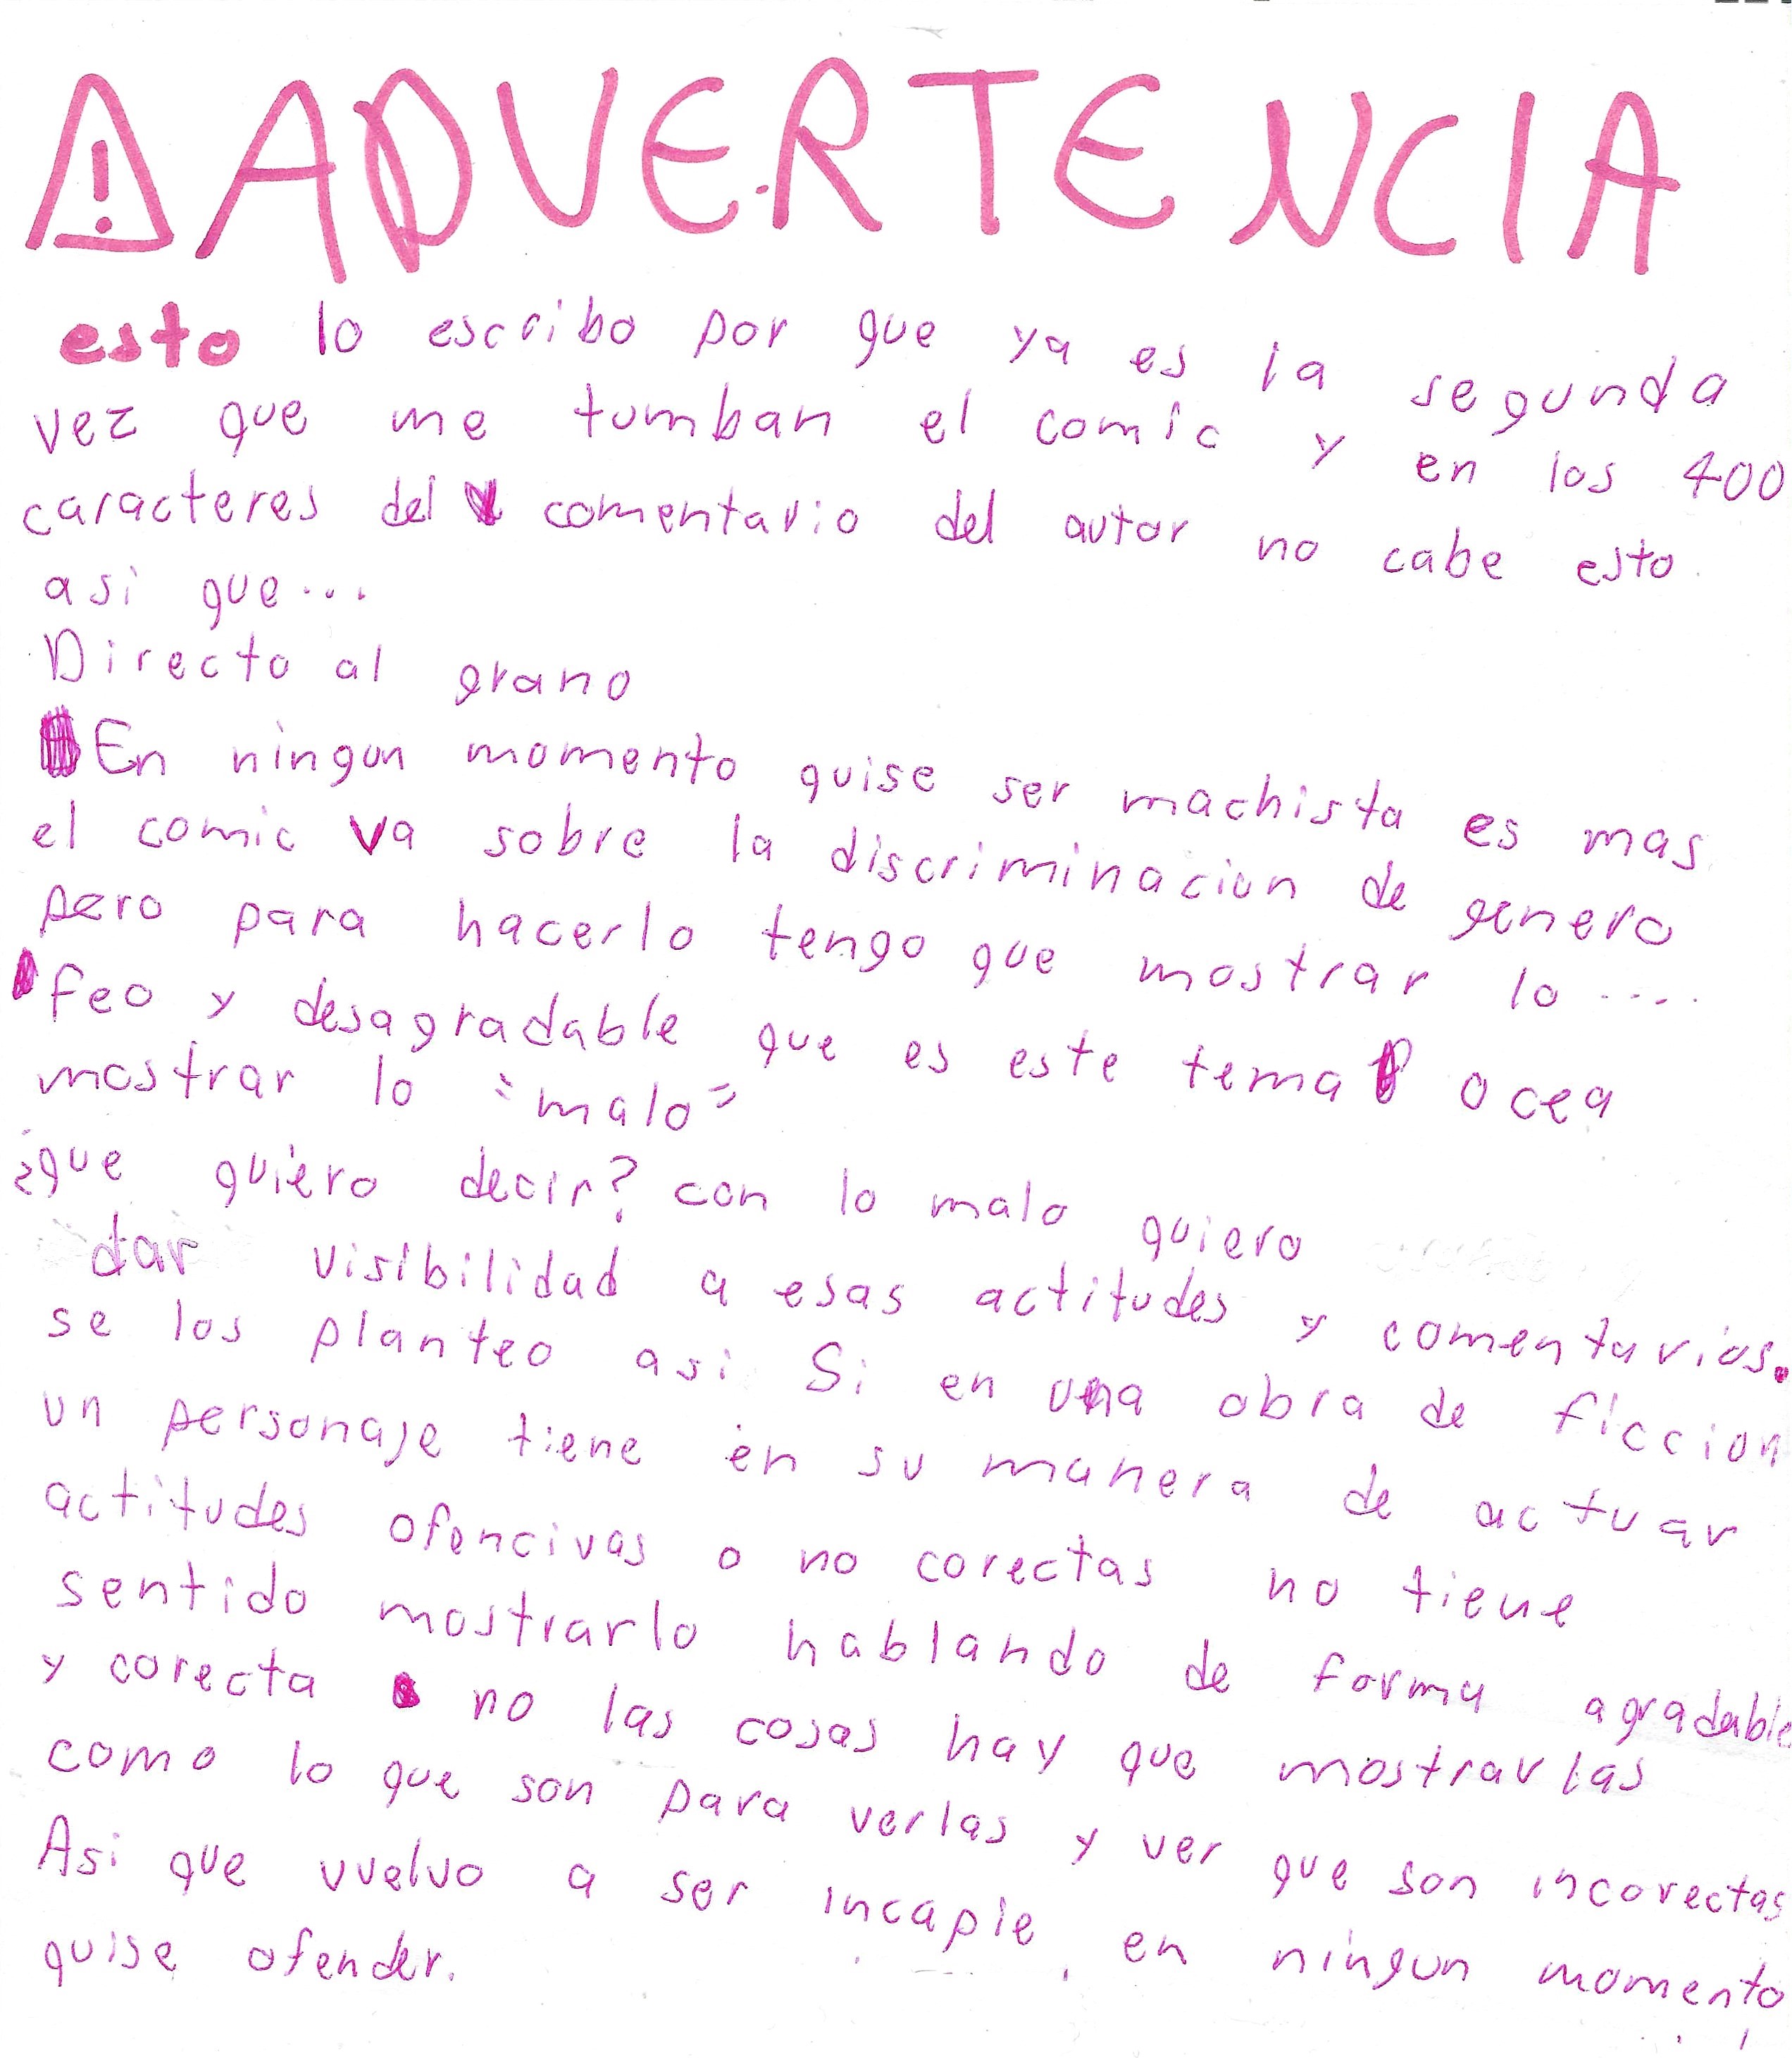 ⚠ ADVERTENCIA
esto lo escribo por que ya es la segunda
vez que me tumban el comic y en los 400
caracteres del comentario del autor no cabe esto
asi que...
Directo al grano
En ningun momento quise ser machista es mas
el comic va sobre la discriminacion de genero
pero para hacerlo tengo que mostrar lo ....
feo y desagradable que es este tema o cea
mostrar lo "malo"
¿que quiero decir? con lo malo quiero
dar visibilidad a esas actitudes y comentarios.
se los planteo asi Si en una obra de ficcion
un personaje tiene en su manera de actuar
actitudes ofencivas o no corectas no tiene
sentido mostrarlo hablando de forma agradable
y corecta no las cosas hay que mostrarlas
como lo que son para verlas y ver que son incorectas
Asi que vuelvo a ser incapie, en ningun momento
quise ofender.